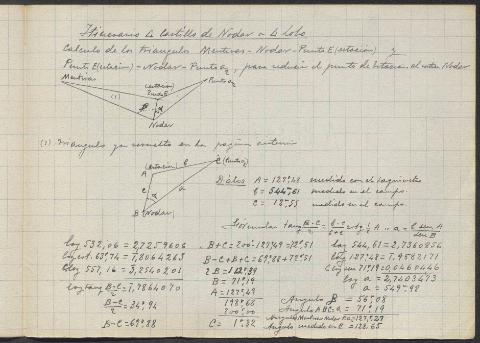 Itinerario Castillo de Nodar a Lobo
Calculo de los triangulos Mentiras - Nodar - Punto E (estación) y
Punto E (estación) - Nodar - Punto a2, para reducir el punto de Estacion al centro Nodar
Mentiras
(estación)
Punto E
Punto a2
(1)
B
α
Nodar
(1) Triangulo ya resuelto en la pagina anterior
(estación)
A
b
C (Punto a2)
c
a
B (Nodar)
Datos A = 127º,48 medido con el taquimetro
b = 544m,61 medido en el campo
c = 12m,55 medido en el campo
Formulas tang (B-C)/2 = (b-c)/(b+c) cotg ½ A a = b sen A / sen B
log 532,06 = 2,7259606
log cot. 63º,74 = 1,8064263
Clog 557,16 = 3,2540201
log tang (B-C)/2 = 1,7864070
(B-C)/2 = 34º,94
B-C = 69º,88
B+C = 200º-127,49 = 72º,51
B-C+B+C = 69º,88 + 72º,51
2B = 142º,39
B = 71º,19
A = 127º,49
198º,68
200º,00
C = 1º,32
log 544,61 = 2,7360856
log 127º,48 =
71º,19 = 0,0460446
log a = 2,7403473
a = 549m,98
Angulo B = 56º,08
Angulo ABC = a = 71º,19
Angulo Mentiras Nodar = 127º,27
Angulo medido en E = 128,65